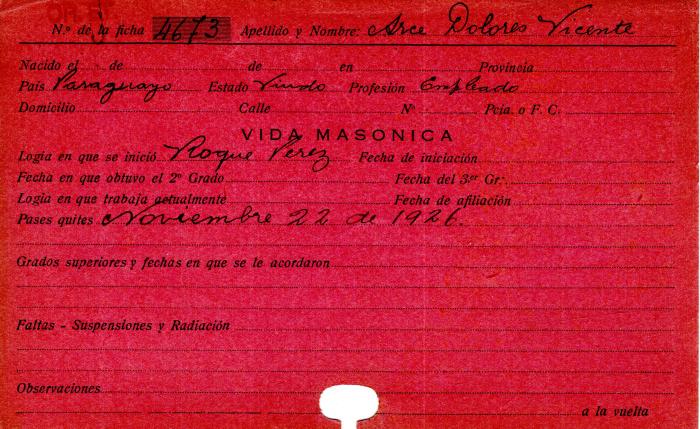 OR. S
Nº de la ficha 4673 Apellido y Nombre: Arce Dolores Vicente
Nacido el de de en Provincia
País Paraguayo Estado Viudo Profesión Empleado
Domicilio Calle Nº Pcia. o F. C.
VIDA MASONICA
Logia en que se inició Roque Pérez Fecha de iniciación
Fecha en que obtuvo el 2º Grado Fecha del 3er Gr.
Logia en que trabaja actualmente Fecha de afiliación
Pases quites Noviembre 22 de 1926.
Grados superiores y fechas en que se le acordaron
Faltas - Suspensiones y Radiación
Observaciones
a la vuelta